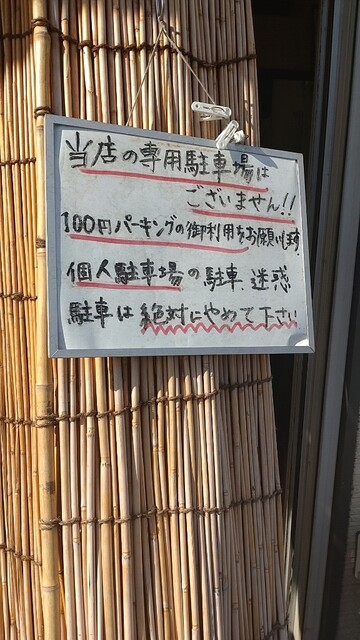 当店の専用駐車場は
ございません!!
100円パーキングの御利用をお願いします。
個人駐車場の駐車、迷惑
駐車は絶対にやめて下さい